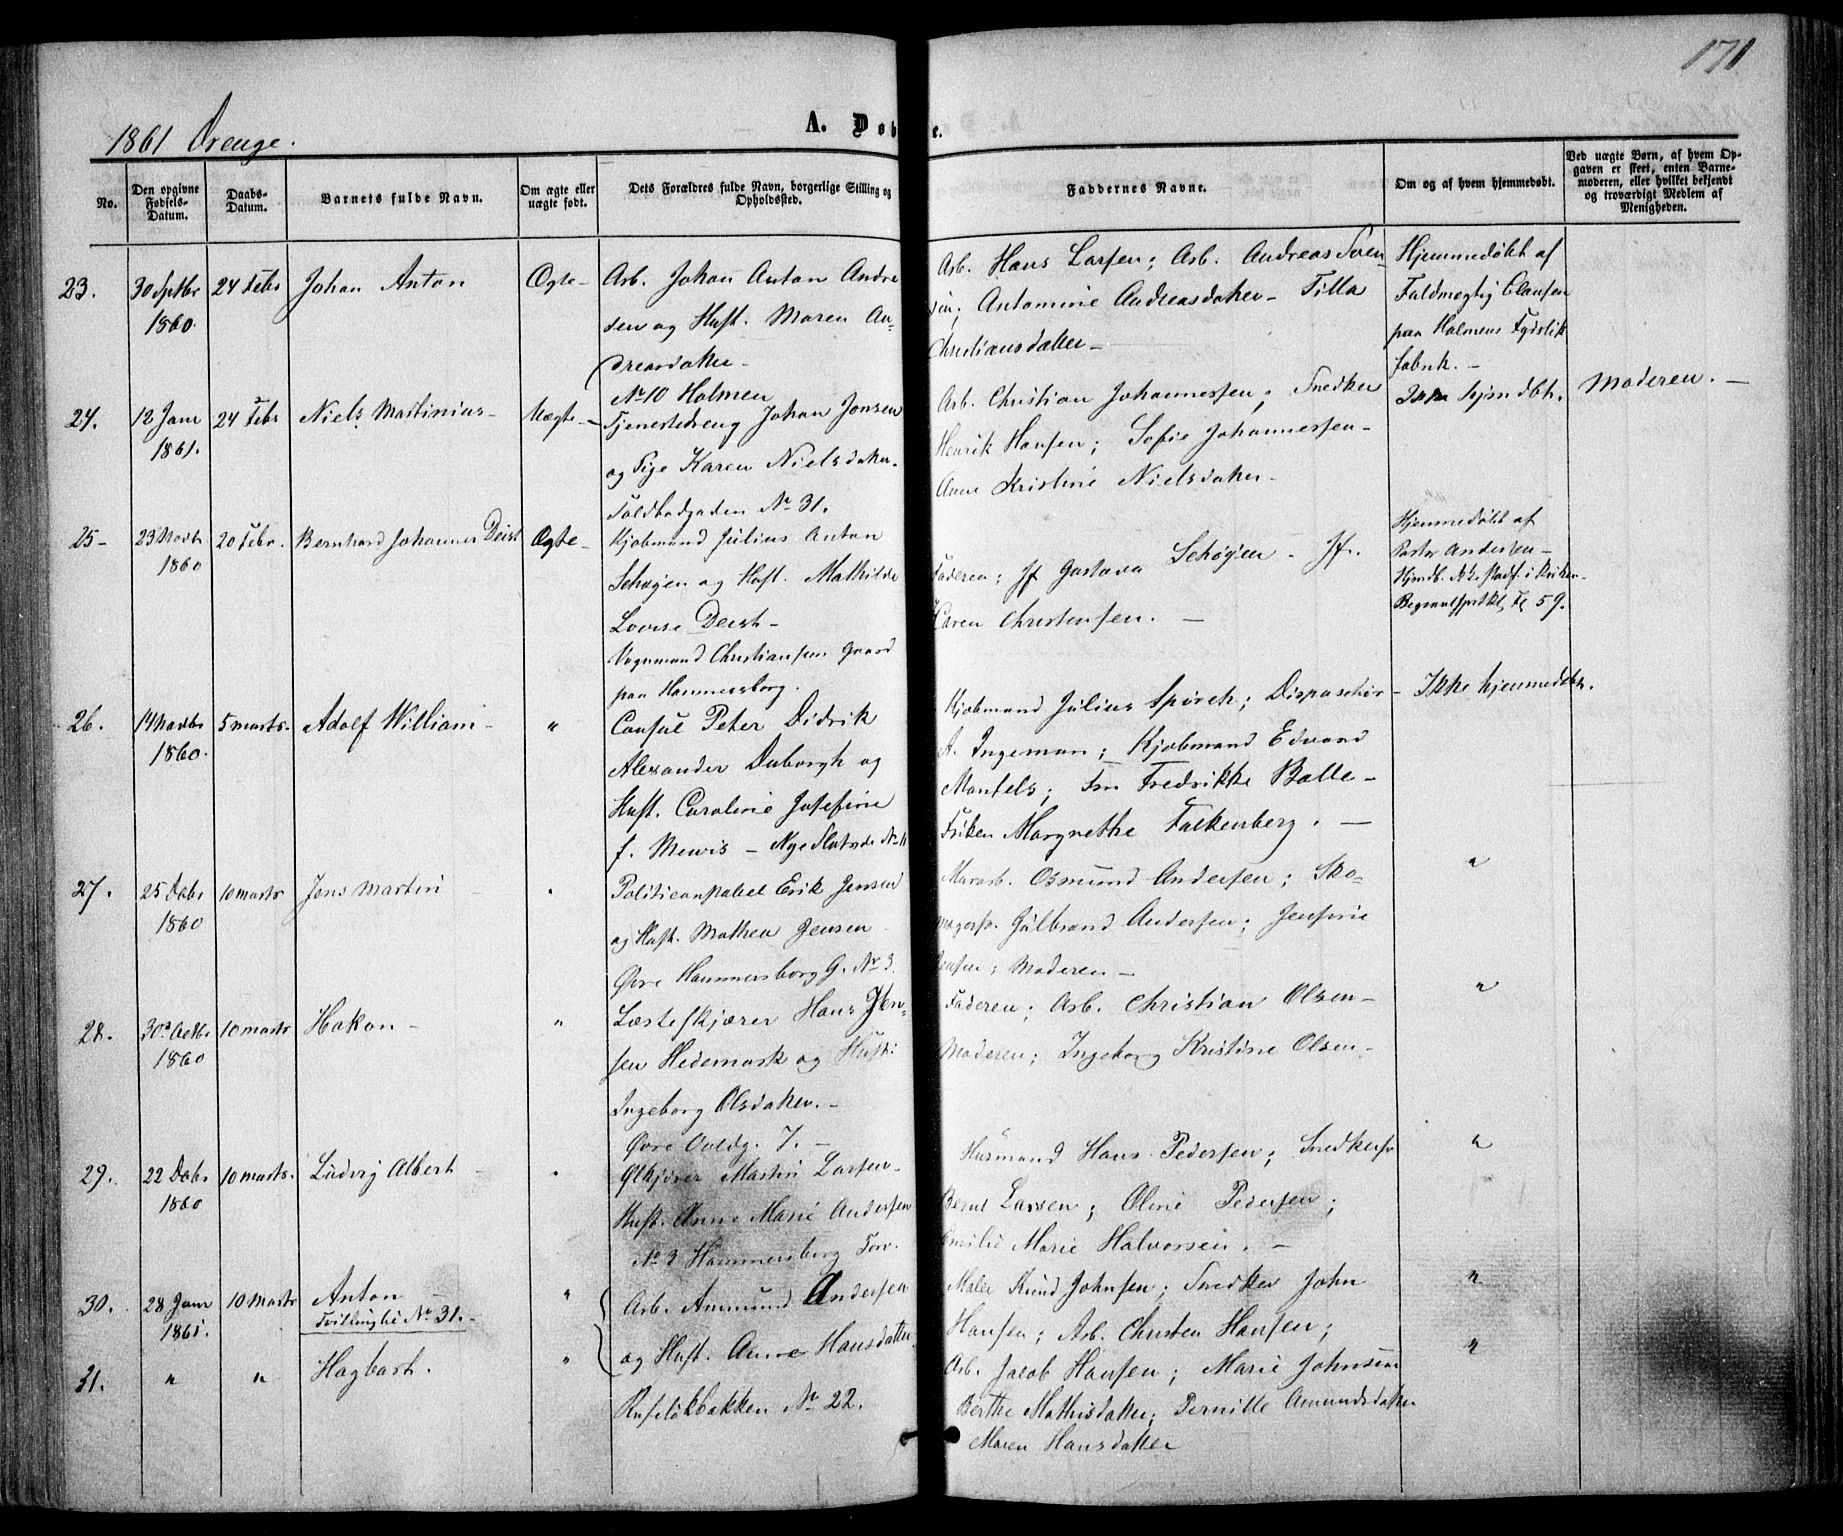 171
1861 Drenge.
A. Døbte.
No.
Den opgivne Fødsels-Datum.
Daabs-Datum.
Barnets fulde Navn.
Om ægte eller uægte født.
Dets Forældres fulde Navn, borgerlige Stilling og Opholdssted.
Faddernes Navne.
Om og af hvem hjemmedøbt.
Ved uægte Børn, af hvem Opgaven er skeet, enten Barnemoderen, eller hvilket bekjendt og troværdigt Medlem af Menigheden.
23. 30 Sptbr 24 Febr Johan Anton Ægte-
1860.
Arb. Johan Anton Andre
sen og Hust. Maren An-
dreasdatter-
No 10 Holmen
Arb. Hans Larsen; Arb. Andreas Sven
sen; Antomine Andreasdatter- Tilla
Christiansdatter-
Hjemmedøbt af
Fuldmegtig Clausen
paa Holmens
fabrik. -
24. 12 Janr 24 Febr Niels Martinius- Uægte-
1861.
Tjenestedreng Johan Jonsen
og Pige Karen Nielsdatter.
Toldbodgaden No 31.
Arb. Christian Johannessen; Snedker
Henrik Hansen; Sofie Johannessen-
Anne Kristine Nielsdatter-
Ikke hjmdbt.
Moderen. -
25- 23 Novbr 20 Febr. Bernhard Johannes Deist Ægte-
1860
Kjøbmand Julius Anton
Schøgen og Hust. Mathilde
Lovise Deist-
Vognmand Christiansens Gaard
paa Hammersborg.
Faderen; Jf Gustava Schøgen - Jf.
Karen Christensen. -
Hjemmedøbt af
Pastor Andersen-
Hjmdb. ikke stadf. i Kirken-
59.
26. 14 Novbr 5 Marts- Adolf William- "
1860.
Consul Peter Didrik
Alexander Duborgh og
Hust. Caroline Josefine
f. Mewis - Nye Slotsgde No 11
Kjøbmand Julius Spørch; Dispaschør-
A. Ingeman; Kjøbmand Edvard
Mantels; Fru Fredrikke Balle-
Frøken Margrethe Falkenberg. -
Ikke hjemmedøbt.
27. 25 Debr 10 Marts Jens Martin - "
1860
Politiconstabel Erik Jensen
og Hust. Mathea Jensen
Øvre Hammersborg G. No 3.
Murarb. Osmund Andersen; Sko-
magersv. Gulbrand Andersen; Jensine
Jensen; Moderen-
"
28. 30 Octbr 10 Marts Hakon- "
1860
Læstekjører Hans Jen-
sen Hedemark og Hust:
Ingeborg Olsdatter.-
Øvre Voldg. 7. -
Faderen; Arb. Christian Olsen-
Moderen; Ingeborg Kristine Olsen-
"
29. 22 Debr 10 Marts. Ludvig Albert - "
1860
Ølkjører Martin Larsen-
Hust. Anne Marie Andersen
No 3 Hammersborg Torv.
Husmand Hans Pedersen; Snedkersv
Bernt Larsen; Oline Pedersen;
Emilie Marie Halvorsen. -
"
30. 28 Janr 10 Marts Anton "
1861. Tvilling til No 31.-
Arb. Ammund Andersen
og Hust. Anne Hansdatter.
Ruseløkbakken No 22.
Maler Knud Johnsen; Snedker John
Hansen; Arb. Christen Hansen;
"
31. " " Hagbart. "
Arb. Jacob Hansen; Marie Johnsen
Berthe Mathisdatter; Pernille Amundsdatter
Maren Hansdatter
"